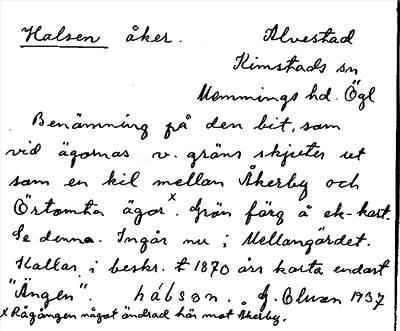 Halsen åker. Alvestad
Kimstads sn
Memmings hd. Ögl
Benämning på den bit, som
vid ägornas v. gräns skjuter ut
som en kil mellan Åkerby och
Örtomta ägor x. Grön färg å ek-kart.
Se denna. Ingår nu i Mellangärdet.
Kallas i beskr. t 1870 års karta endast
"Ängen". hálsən. G. Olsson 1937
x Rågången något ändrad här mot Åkerby.